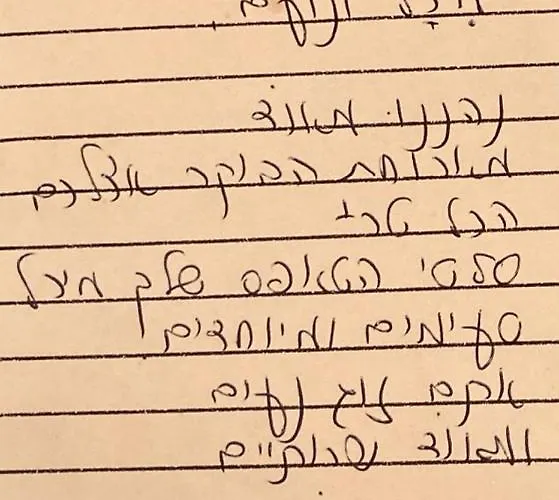 נהננו מאוד
מארוחת הבוקר אצלכם
הכל טרי
סלטי הטאפס שלך מיכל
טעימים ומיוחדים
אתם זוג נעים
ומאוד שרותיים